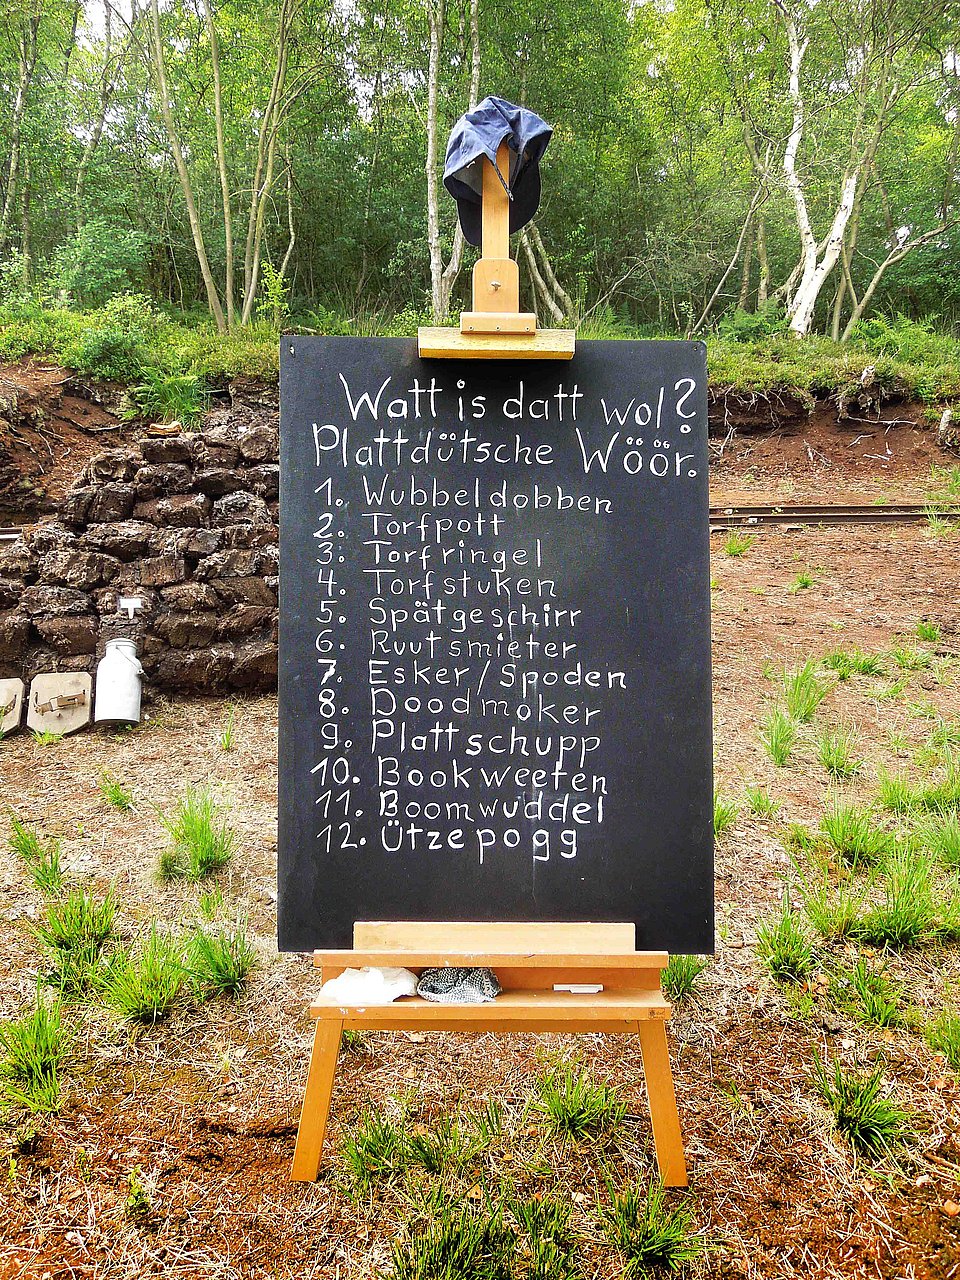 Watt is datt wol?
Plattdütsche Wöör.
1. Wubbeldobben
2. Torfpott
3. Torfringel
4. Torfstuken
5. Spätgeschirr
6. Ruutsmieter
7. Esker/Spoden
8. Doodmoker
9. Plattschupp
10. Bookweeten
11. Boomwuddel
12. Ützepogg